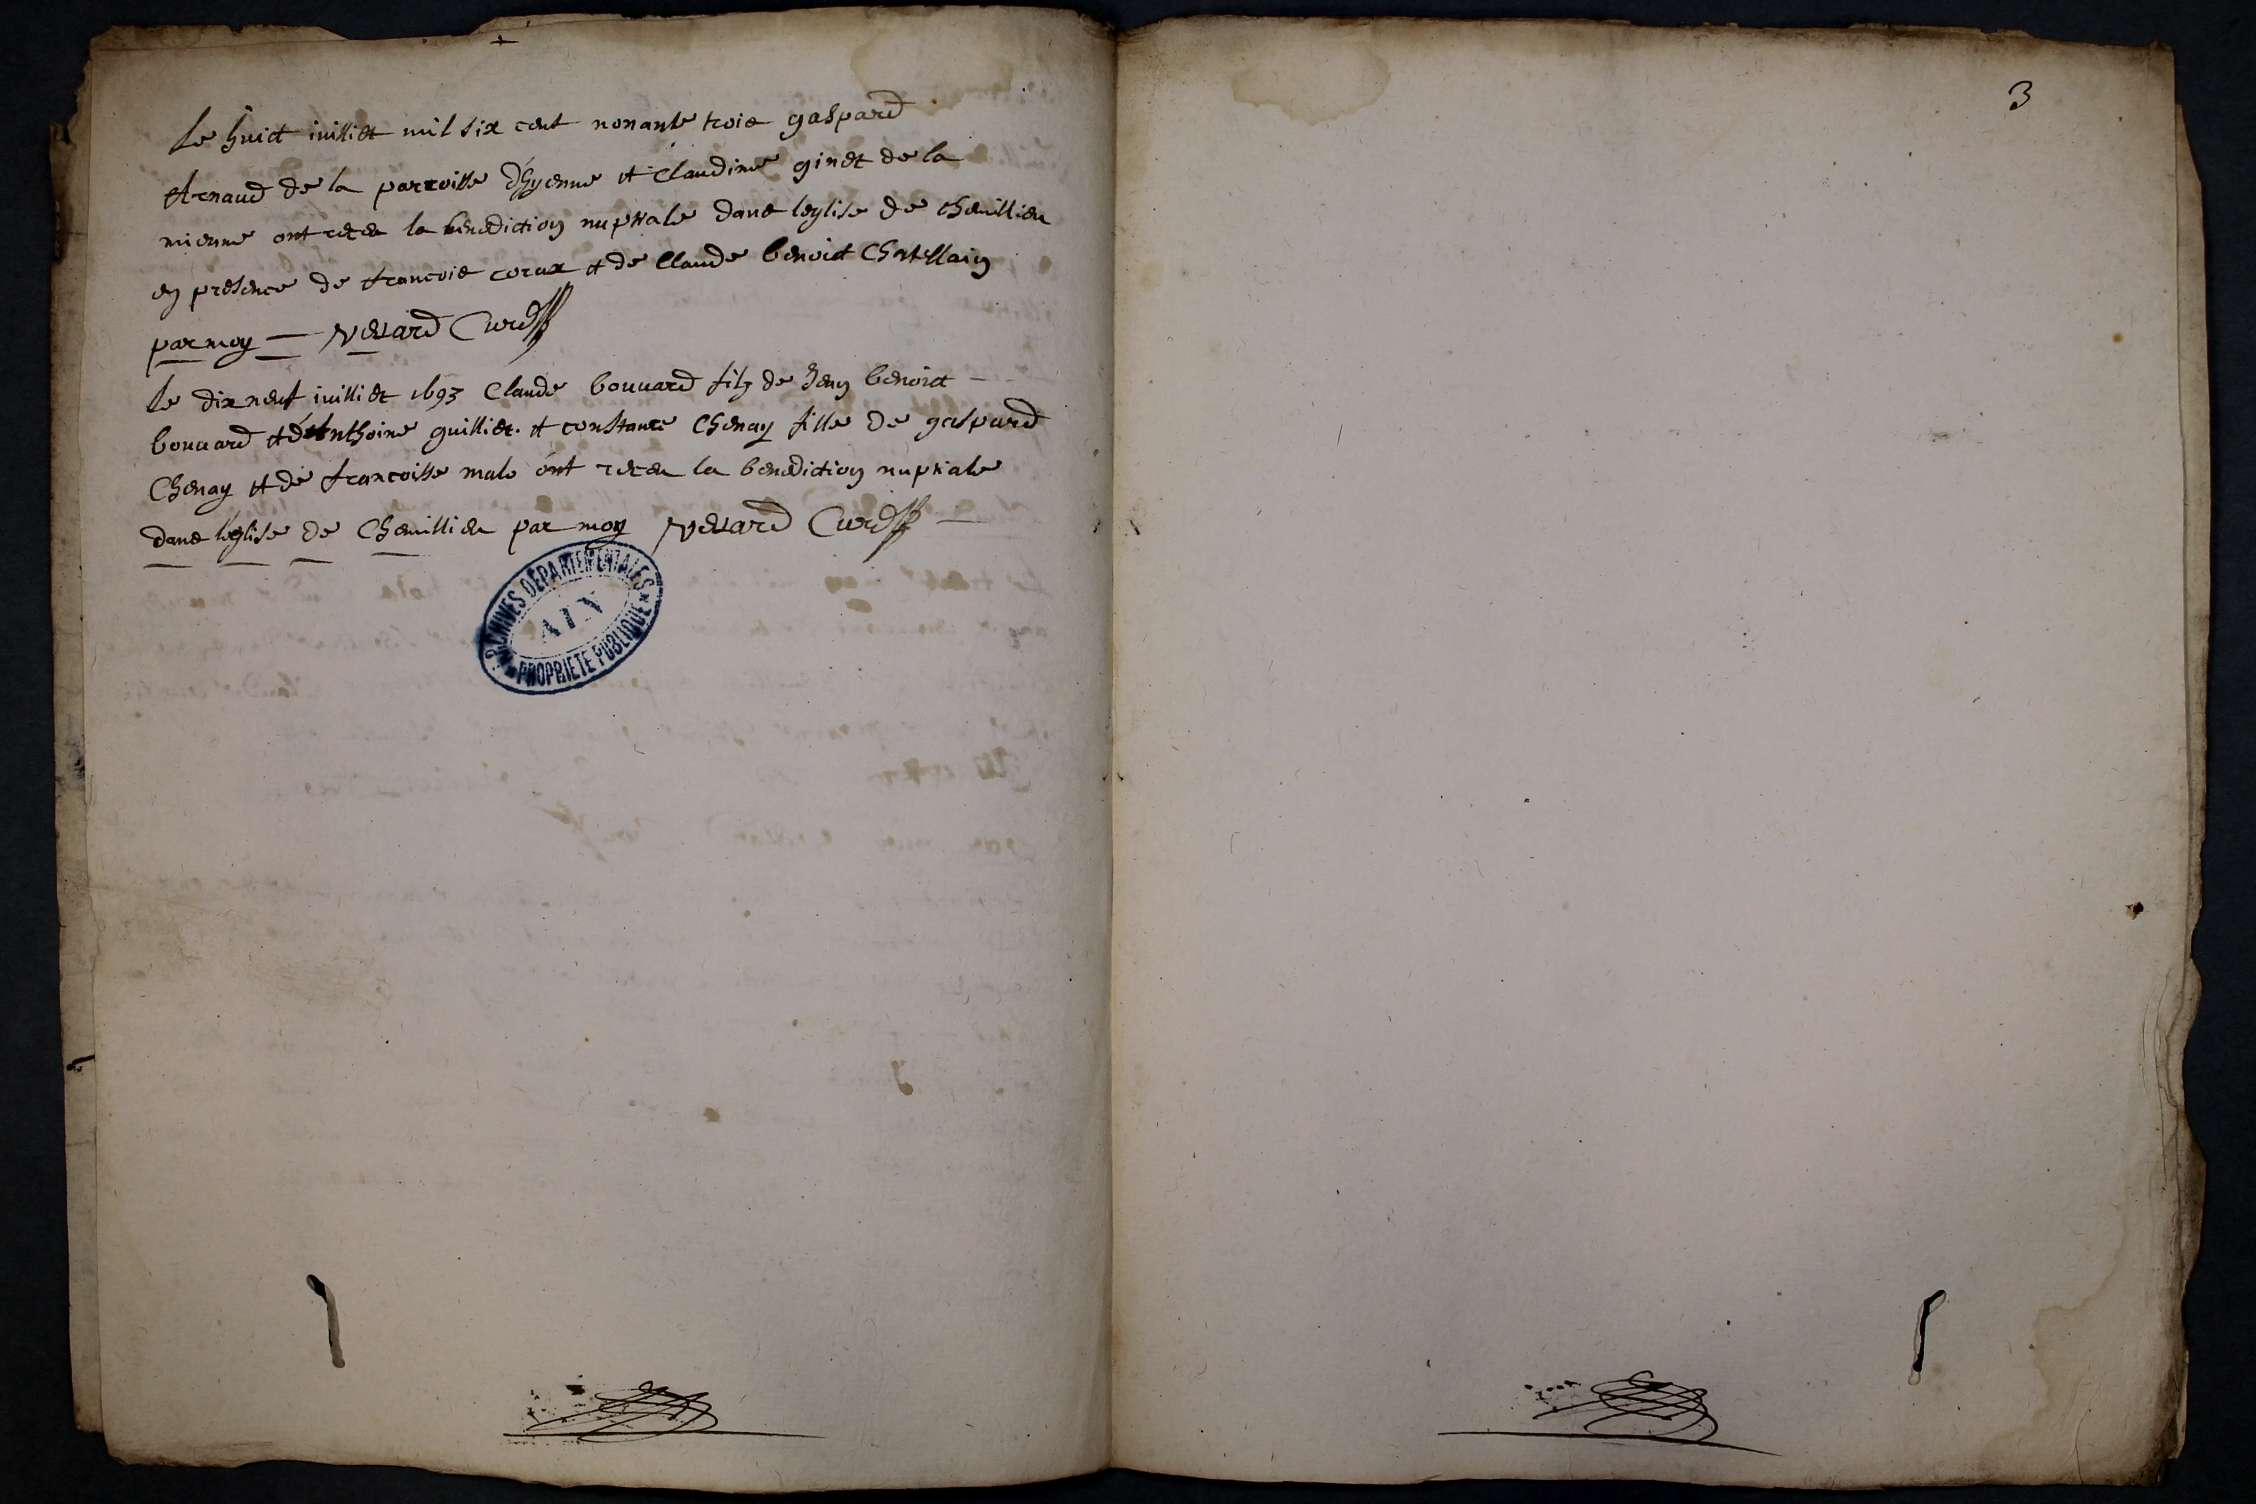 Le huict juilliet mil six cent nonante trois gaspard
Arnaud de la parroisse d'hyenne et Claudine ginet de la
mienne ont receu la benediction nuptiale dans leglise de cheuillieu
en presence de francois corax et de Claude benoict Chatellain
par moy — Curé
Le dixneuf juilliet 1693 Claude bouuard filz de benoict —
bouuard et d'Anthoine guilliet et constance Chenay fille de gaspard
Chenay et de francoisse malo ont receu la benediction nuptiale
dans leglise de Cheuillieu par moy Curé —
ARCHIVES DÉPARTEMENTALES
AIN
PROPRIÉTÉ PUBLIQUE
3